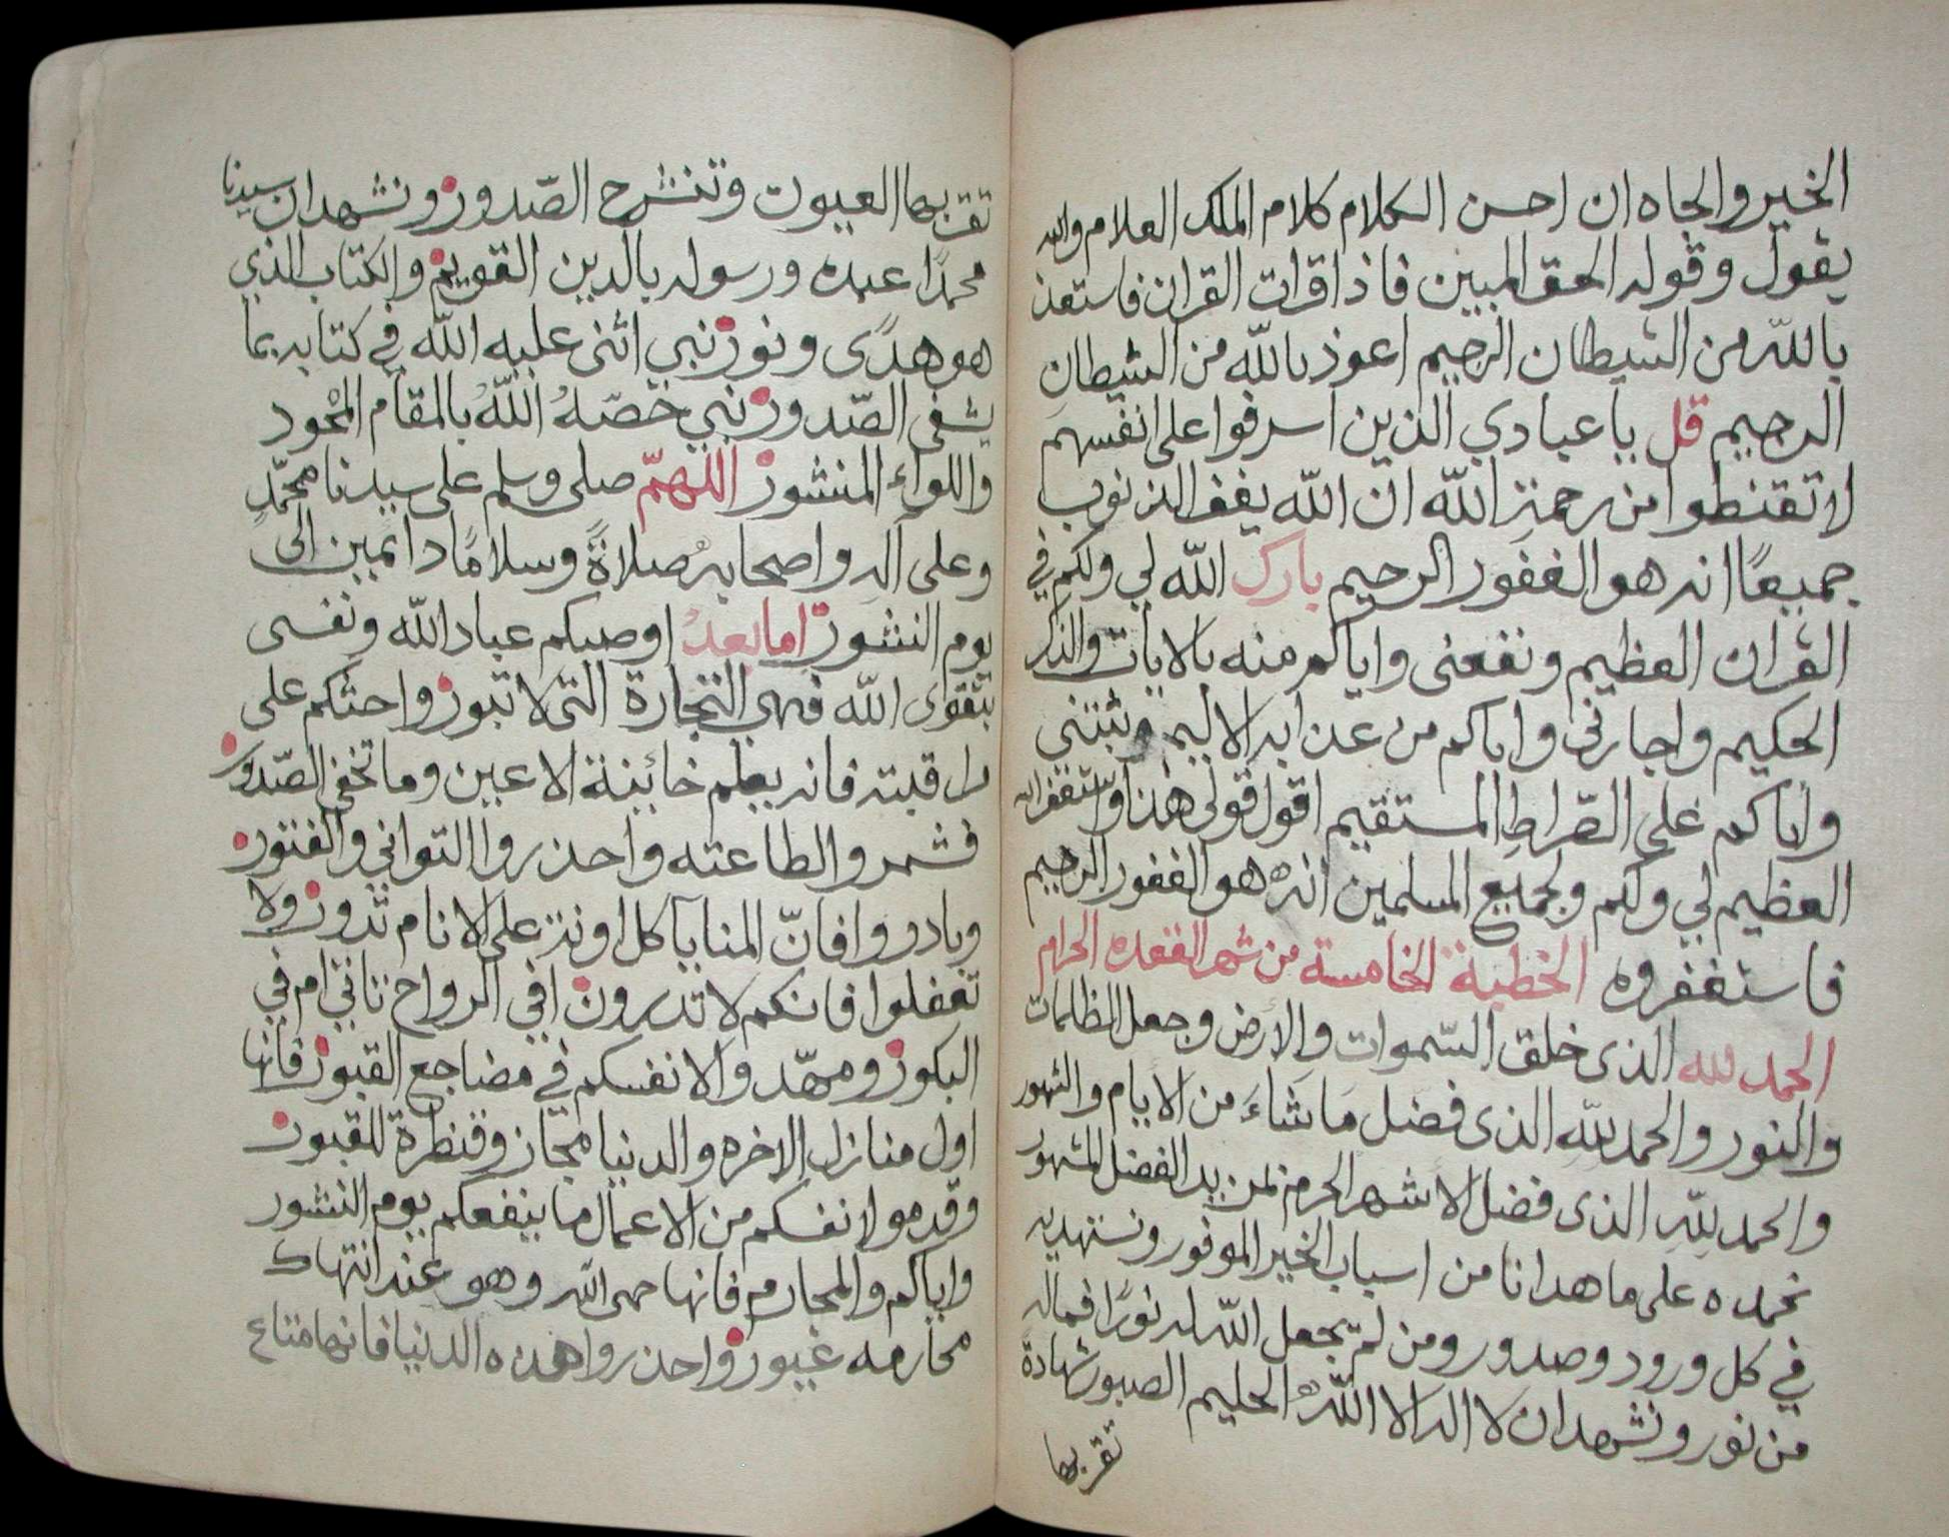 الخير والجاه ان احسن الكلام كلام الملك العلام والله
يقول وقوله الحق المبين فاذا قرات القران فاستعذ
بالله من الشيطان الرجيم اعوذ بالله من الشيطان
الرجيم قل يا عبادي الذين اسرفوا على انفسهم
لا تقنطوا من رحمة الله ان الله يغفر الذنوب
جميعًا انه هو الغفور الرحيم بارك الله لي ولكم في
القران العظيم ونفعنى واياكم منه بالايات والذكر
الحكيم واجارنى واياكم من عذابه الاليم وثبتني
واياكم على الصّراطِ المستقيم اقول قولى هذا واستغفر الله
العظيم لي ولكم ولجميع المسلمين انه هو الغفور الرحيم
فاستغفروه الخطبة الخامسة من شهر القعده الحرام
الحمد لله الذى خلق السّموات والارض وجعل الظلمات
والنور والحمد لله الذى فضل ما شاءَ من الايام والشهور
والحمد للهِ الذى فضل الاشهر الحرم بمزيد الفضل المشهور
نحمده على ما هدانا من اسباب الخير الموفور ونستهديه
في كل ورود وصدور ومن لم يجعل الله له نورًا فما له
من نور ونشهد ان لا اله الا الله الحليم الصبور شهادة
تقر بها
تقر بها العيون وتنشرح الصّدور ونشهد ان سيدنا
محمدًا عبده ورسوله بالدين القويم والكتاب الذي
هو هدًى ونور نبي اثنى عليه الله في كتابه بما
يشفى الصّدور نبي خصّهُ اللهُ بالمقام المحمود
واللواء المنشور اللهمّ صلى وسلم على سيدنا محمّدٍ
وعلى آلهِ واصحابهِ صلاةً وسلامًا دايمين الى
يوم النشور اما بعدُ اوصيكم عباد الله ونفسى
بتقوى الله فهى التجارة التى لا تبور واحثكم على
مراقبته فانه يعلم خائينة الاعين وما تخفى الصّدور
فشمروا لطاعته واحذروا التواني والفتور
وبادروا فانّ المنايا كل اونة على الانام تدور ولا
تغفلوا فانكم لا تدرون افي الرواح تاتي ام في
البكور ومهّدوا لانفسكم في مضاجع القبور فانها
اول منازل الاخره والدنيا مجاز وقنطرة للقبور
وقدموا لانفسكم من الاعمال ما ينفعكم يوم النشور
واياكم والمحارم فانها حمى الله وهو عند انتهاك
محارمه غيور واحذروا هذه الدنيا فانها متاع